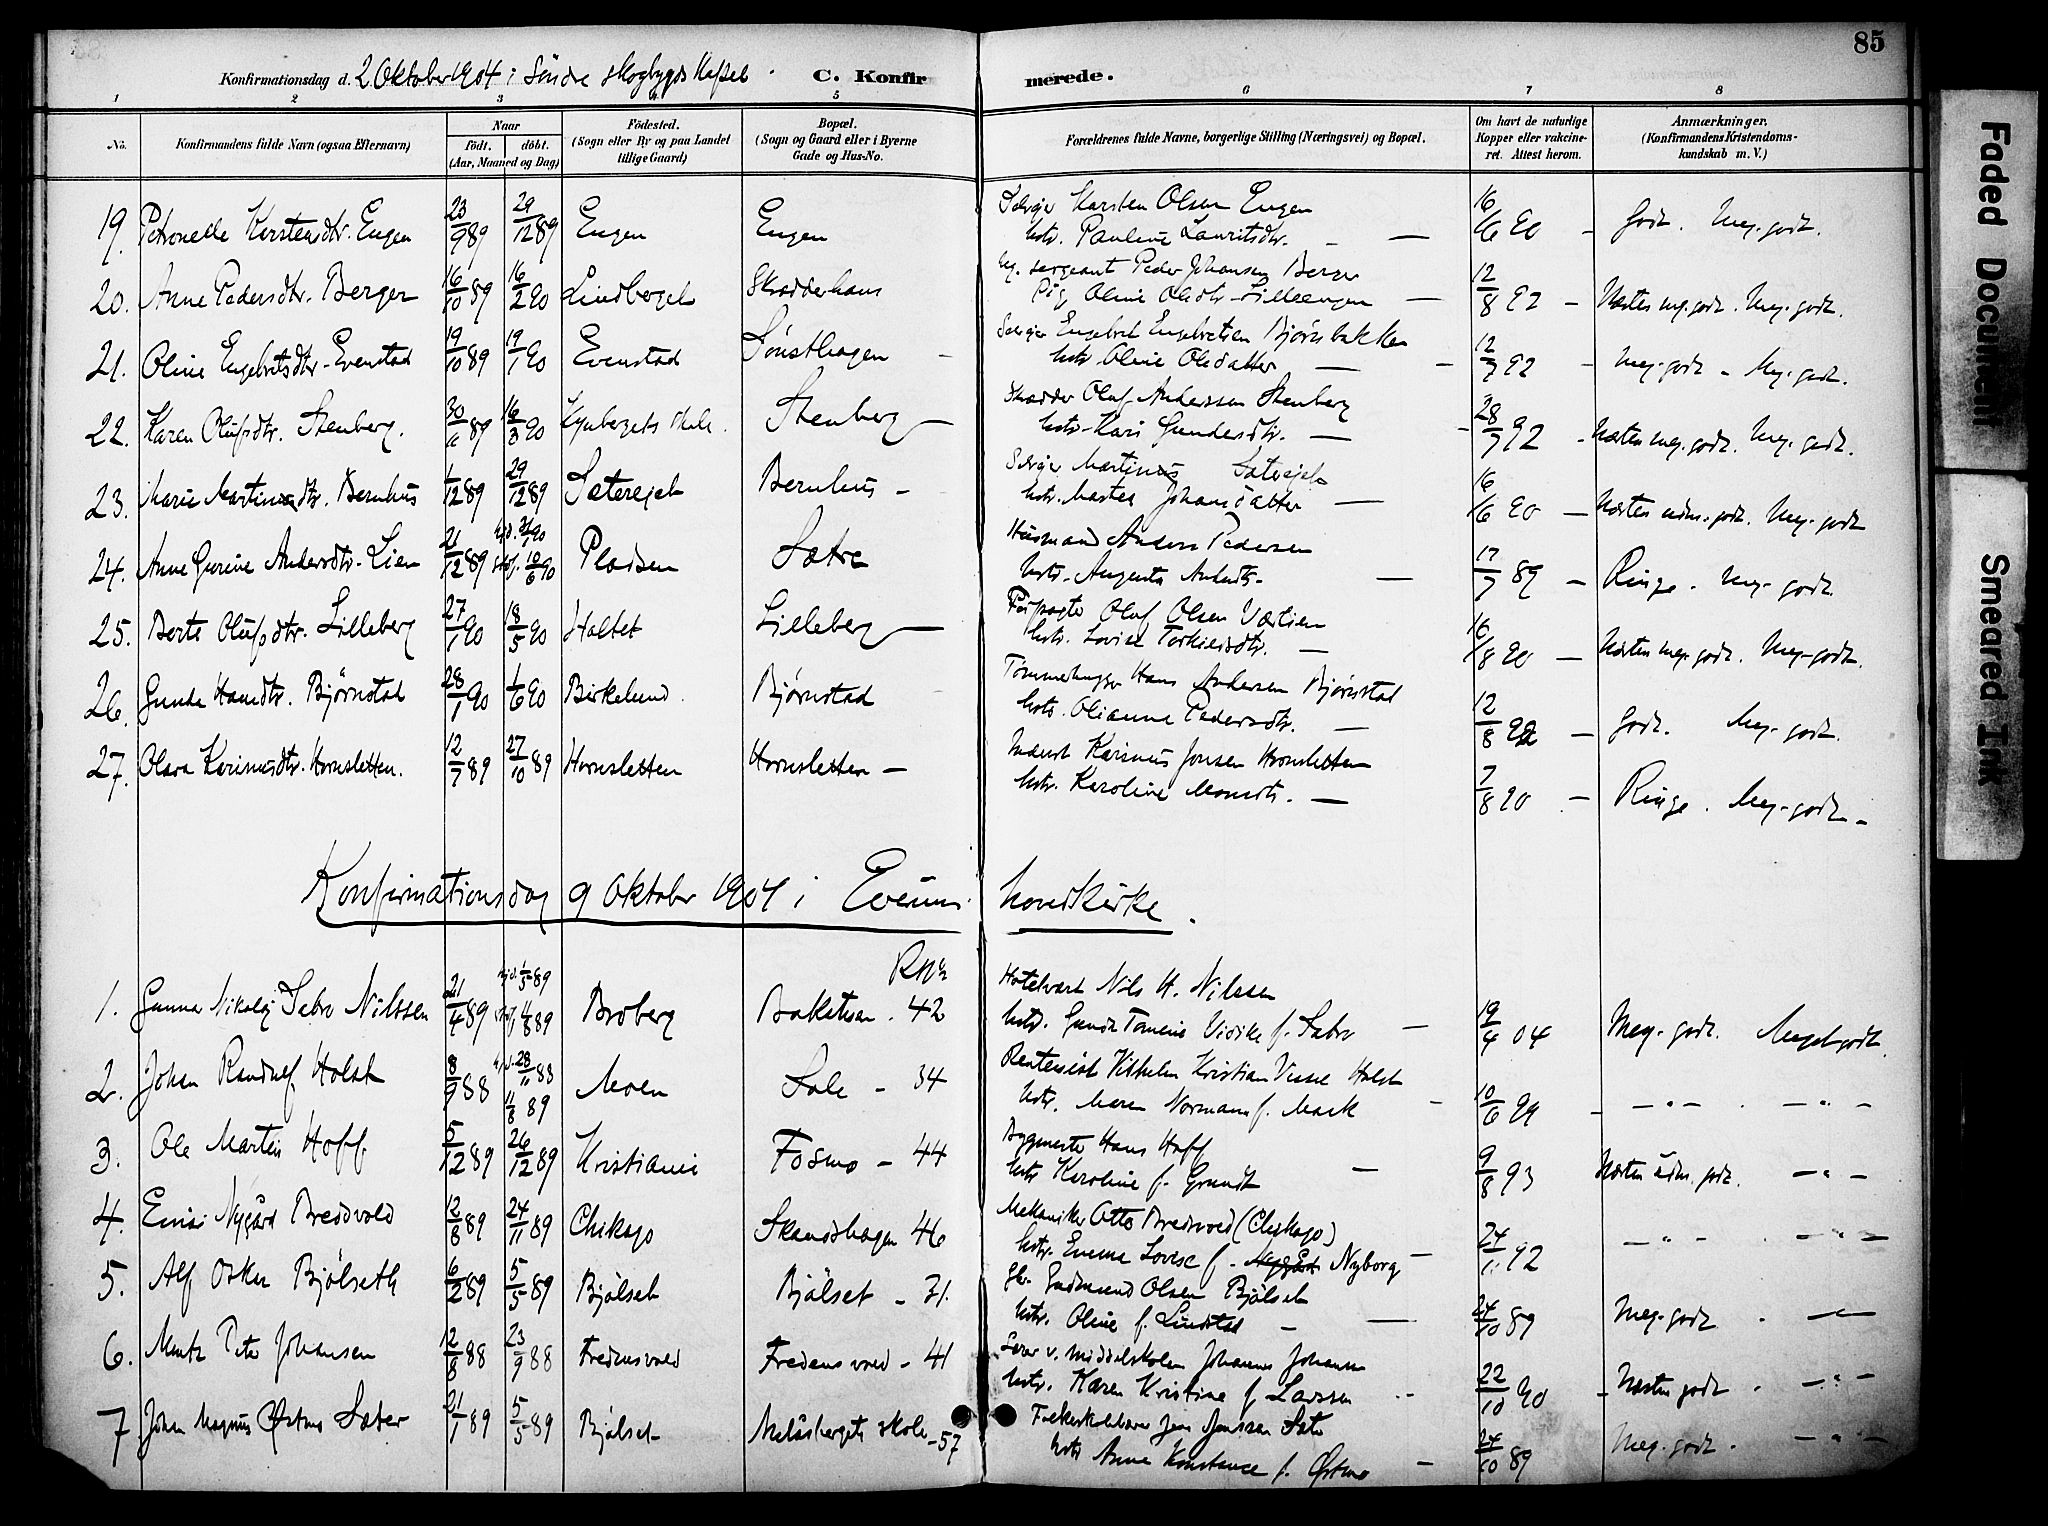 85
Konfirmationsdag d. 2 Oktober 1904 i Söndre skogbygds Kapel. C. Konfirmerede.
1 2 3 4 5 6 7 8
No. Konfirmandens fulde Navn (ogsaa Efternavn) Naar født. døbt. (Aar, Maaned og Dag) Fødested. (Sogn eller By og paa Landet tillige Gaard) Bopæl. (Sogn og Gaard eller i Byerne Gade og Hus-No. Forældrenes fulde Navne, borgerlige Stilling (Næringsvei) og Bopæl. Om havt de naturlige Kopper eller vakcineret. Attest herom. Anmærkninger. (Konfirmandens Kristendomskundskab m. V.)
19. Petronelle Karstensdtr. Engen 23/9 89 29/12 89 Engen Engen Selveier Karsten Olsen Engen
hstr. Pauline Lauritsdtr. — 16/6 90 - Godt. Meg. godt.
20. Anne Pedersdtr. Berger 16/10 89 16/2 90 Lindberget Skredderhans Ug. sergeant Peder Johansen Berger
Pig. Oline Olsdtr. Lilleengen — 12/8 92 - Næsten meg. godt. Meg. godt.
21. Oline Engebretsdtr. Evenstad 19/10 89 19/1 90 Evenstad Sønsthagen - Selveier Engebret Engebretsen Bjørnbakken
hstr. Oline Olsdatter — 12/7 92 - Meg. godt - Meg. godt.
22. Karen Olufsdtr. Stenberg. 30/11 89 16/3 90 Kynbergets skole. Stenberg — Skrædder Oluf Anderssen Stenberg
hstr. Kari Gundersdtr. — 28/7 92 - Næsten meg. godt. Meg. godt.
23. Marie Martinusdtr. Bernhus 1/12 89 29/12 89 Sæterejet Bernhus - Selveier Martinus Sæterejet
hstr. Martea Johansdatter — 16/6 90 - Næsten udm. godt. Meg. godt
24. Anne Gurine Andersdtr. Lien 21/12 89 hjd. 2/1 90 stadf. 10/6 90 Pladsen Sætre Husmand Anders Pedersen
hstr. Augusta — 17/7 89 - Ringe. Meg. godt.
25. Berte Olufsdtr. Lilleberg 27/1 90 18/5 90 Holtet Lilleberg — Forpagter Oluf Olsen Værlien
hstr. Lovise Torkildsdtr. — 16/8 90 - Næsten meg. godt. Meg. godt.
26. Gunda Hansdtr. Bjørnstad 28/1 90 1/6 90 Birkelund. Bjørnstad Tømmerhugger Hans Andersen Bjørnstad
hstr. Olianna Pedersdtr. — 12/8 92 - Godt. Meg. godt.
27. Olava Karinusdtr. Hornsletten. 12/7 89 27/10 89 Hornsletten Hornsletten - Inderst Karinus Jonsen Hornsletten
hstr. Karoline — 7/8 90 - Ringe. Meg. godt -
Konfirmationsdag 9 Oktober 1904 i Elverum hovedkirke.
1. Gunnar Nikolaj Sæbø Nilssen 21/4 89 hjd. 1/5 89 stadf. 11/8 89 Broberg Baketsen. 42 Hotelvært Nils H. Nilssen
hstr. Gunda Tomine Vidike f. Sæbø — 19/4 04 Meg. godt. Meget godt.
2. Johan Randulf Holst 8/9 88 hjd. 28/11 88 11/8 89 Moen Sole - 34 Rentenist Vilhelm Kristian Vissel Holst
hstr. Maren Normann f. Mack - 10/6 99 - — " — . — " —
3. Ole Martin Hoff 5/12 89 26/12 89 Kristiania Fosmo - 44 Bygmester Hans Hoff
hstr. Karoline f. Grundt — 9/8 93 Næsten udm. godt. — " —
4. Einar Nygård Bredvold 12/8 89 24/11 89 Chikago Strandhagen 46 Mekaniker Otto Bredvold (Chikago)
hstr. Emma Lovise f. Nygård Nyborg — 24/11 92 — " — — " —
5. Alf Oskar Bjölseth 6/2 89 5/5 89 Bjölset Bjölset - 71. Gbr. Gudmund Olsen Bjölset
hstr. Oline f. Lindstad - — 24/10 89 Meg. godt . —
6. Mentz Peter Johansen 12/8 88 23/9 88 Fredensvold Fredensvold - 41 Lærer v. Middelskolen Johannes Johansen
hstr. Karen Kristine f. Larssen 22/10 90 - Næsten godt . — " —
7 Johan Magnus Østmo Sæter 21/1 89 5/5 89 Bjölset Melåsbergets skole - 57 Folkeskolelærer Jens Jenssen Sæter
hstr Anne Konstance f. Østmo - 24/10 89 Meg. godt . — " —
Faded Document
Smeared Ink